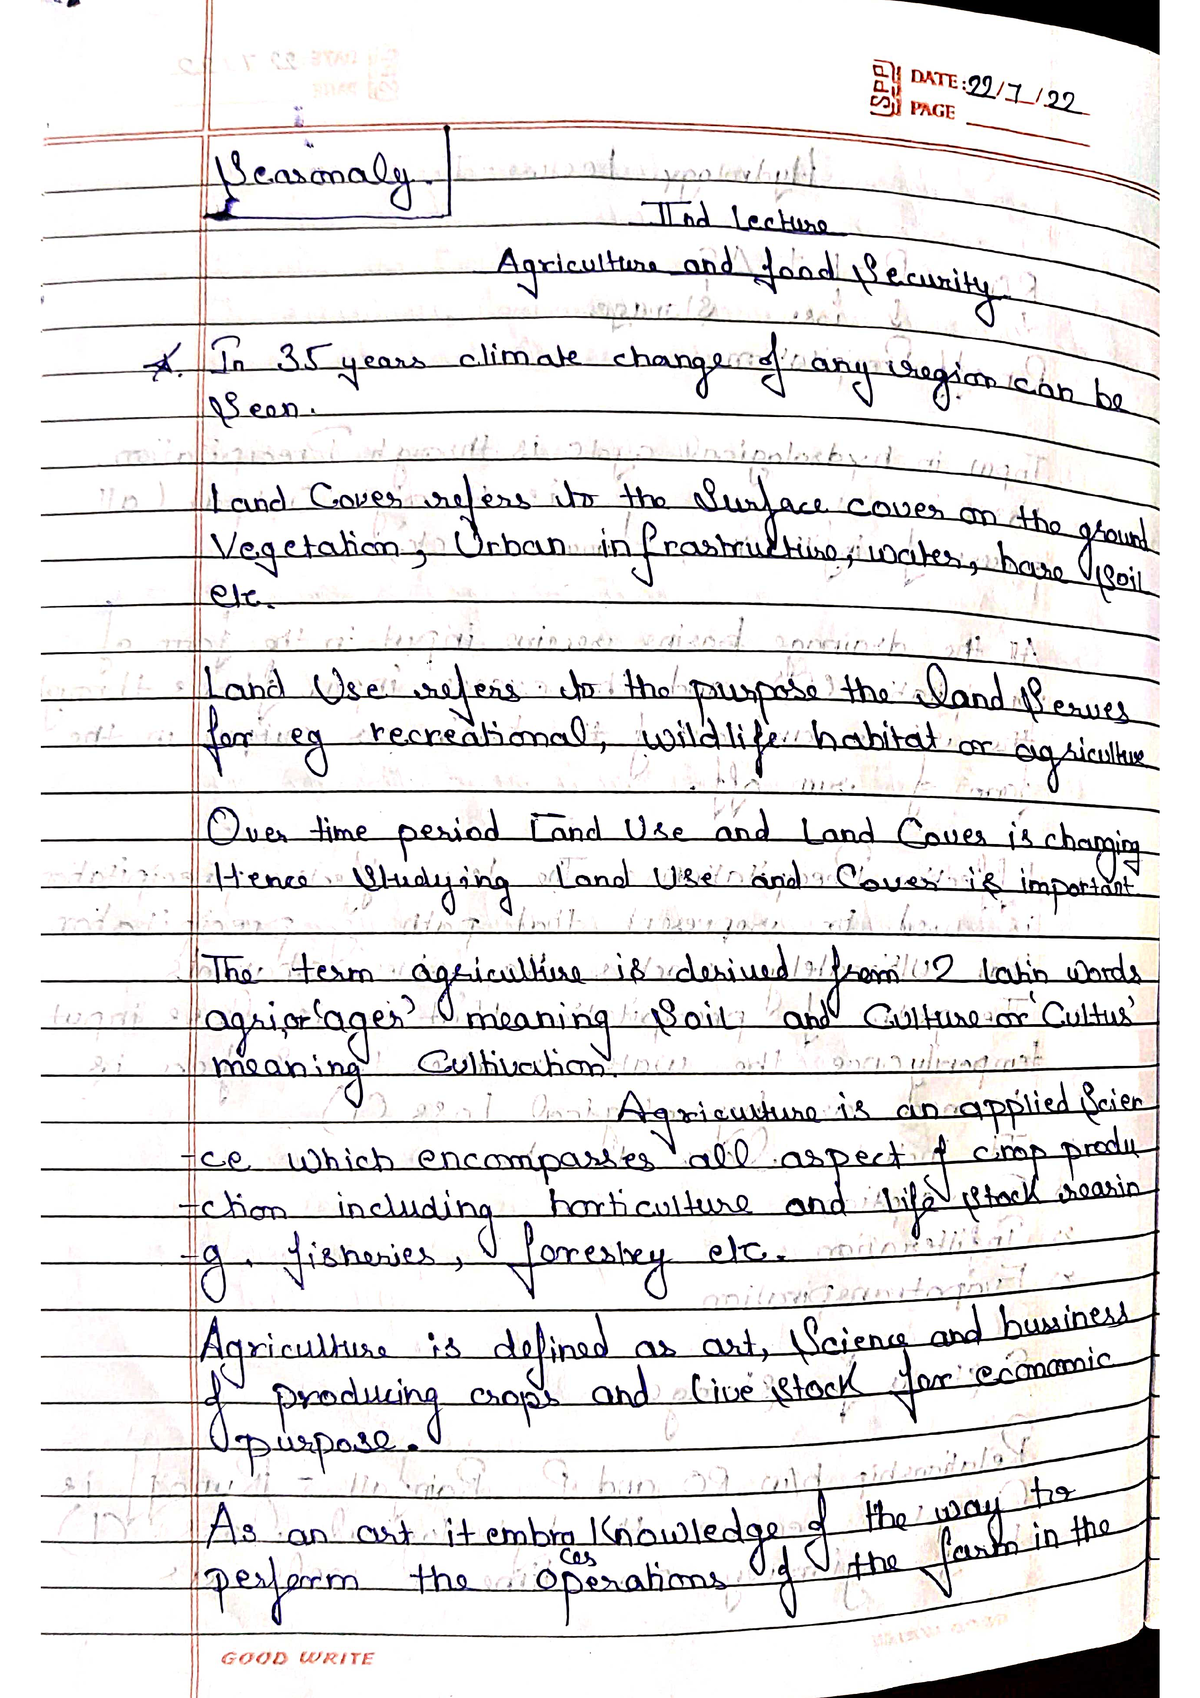 SPD DATE: 22/7/22
PAGE
Seasonaly.
IInd Lecture
Agriculture and food Security
*. In 35 years climate change of any region can be
Seen.
Land Cover refers to the Surface cover on the ground
Vegetation, Urban infrastructure, water, bare Soil
etc.
Land Use refers to the purpose the land Serves
for eg recreational, wildlife habitat or agriculture
Over time period Land Use and Land Cover is changing
Hence Studying Land Use and Cover is important
The term agriculture is derived from 2 Latin words
agri,or 'ager' meaning Soil and Culture or 'Cultus'
meaning Cultivation.
Agriculture is an applied Scien
-ce which encompasses all aspect of crop produ
-ction including horticulture and life Stock rearin
-g, fisheries, forestry etc.
Agriculture is defined as art, Science and bussiness
of producing crops and live Stock for economic
purpose.
As an art it embraces Knowledge of the way to
perform the operations of the farm in the
GOOD WRITE